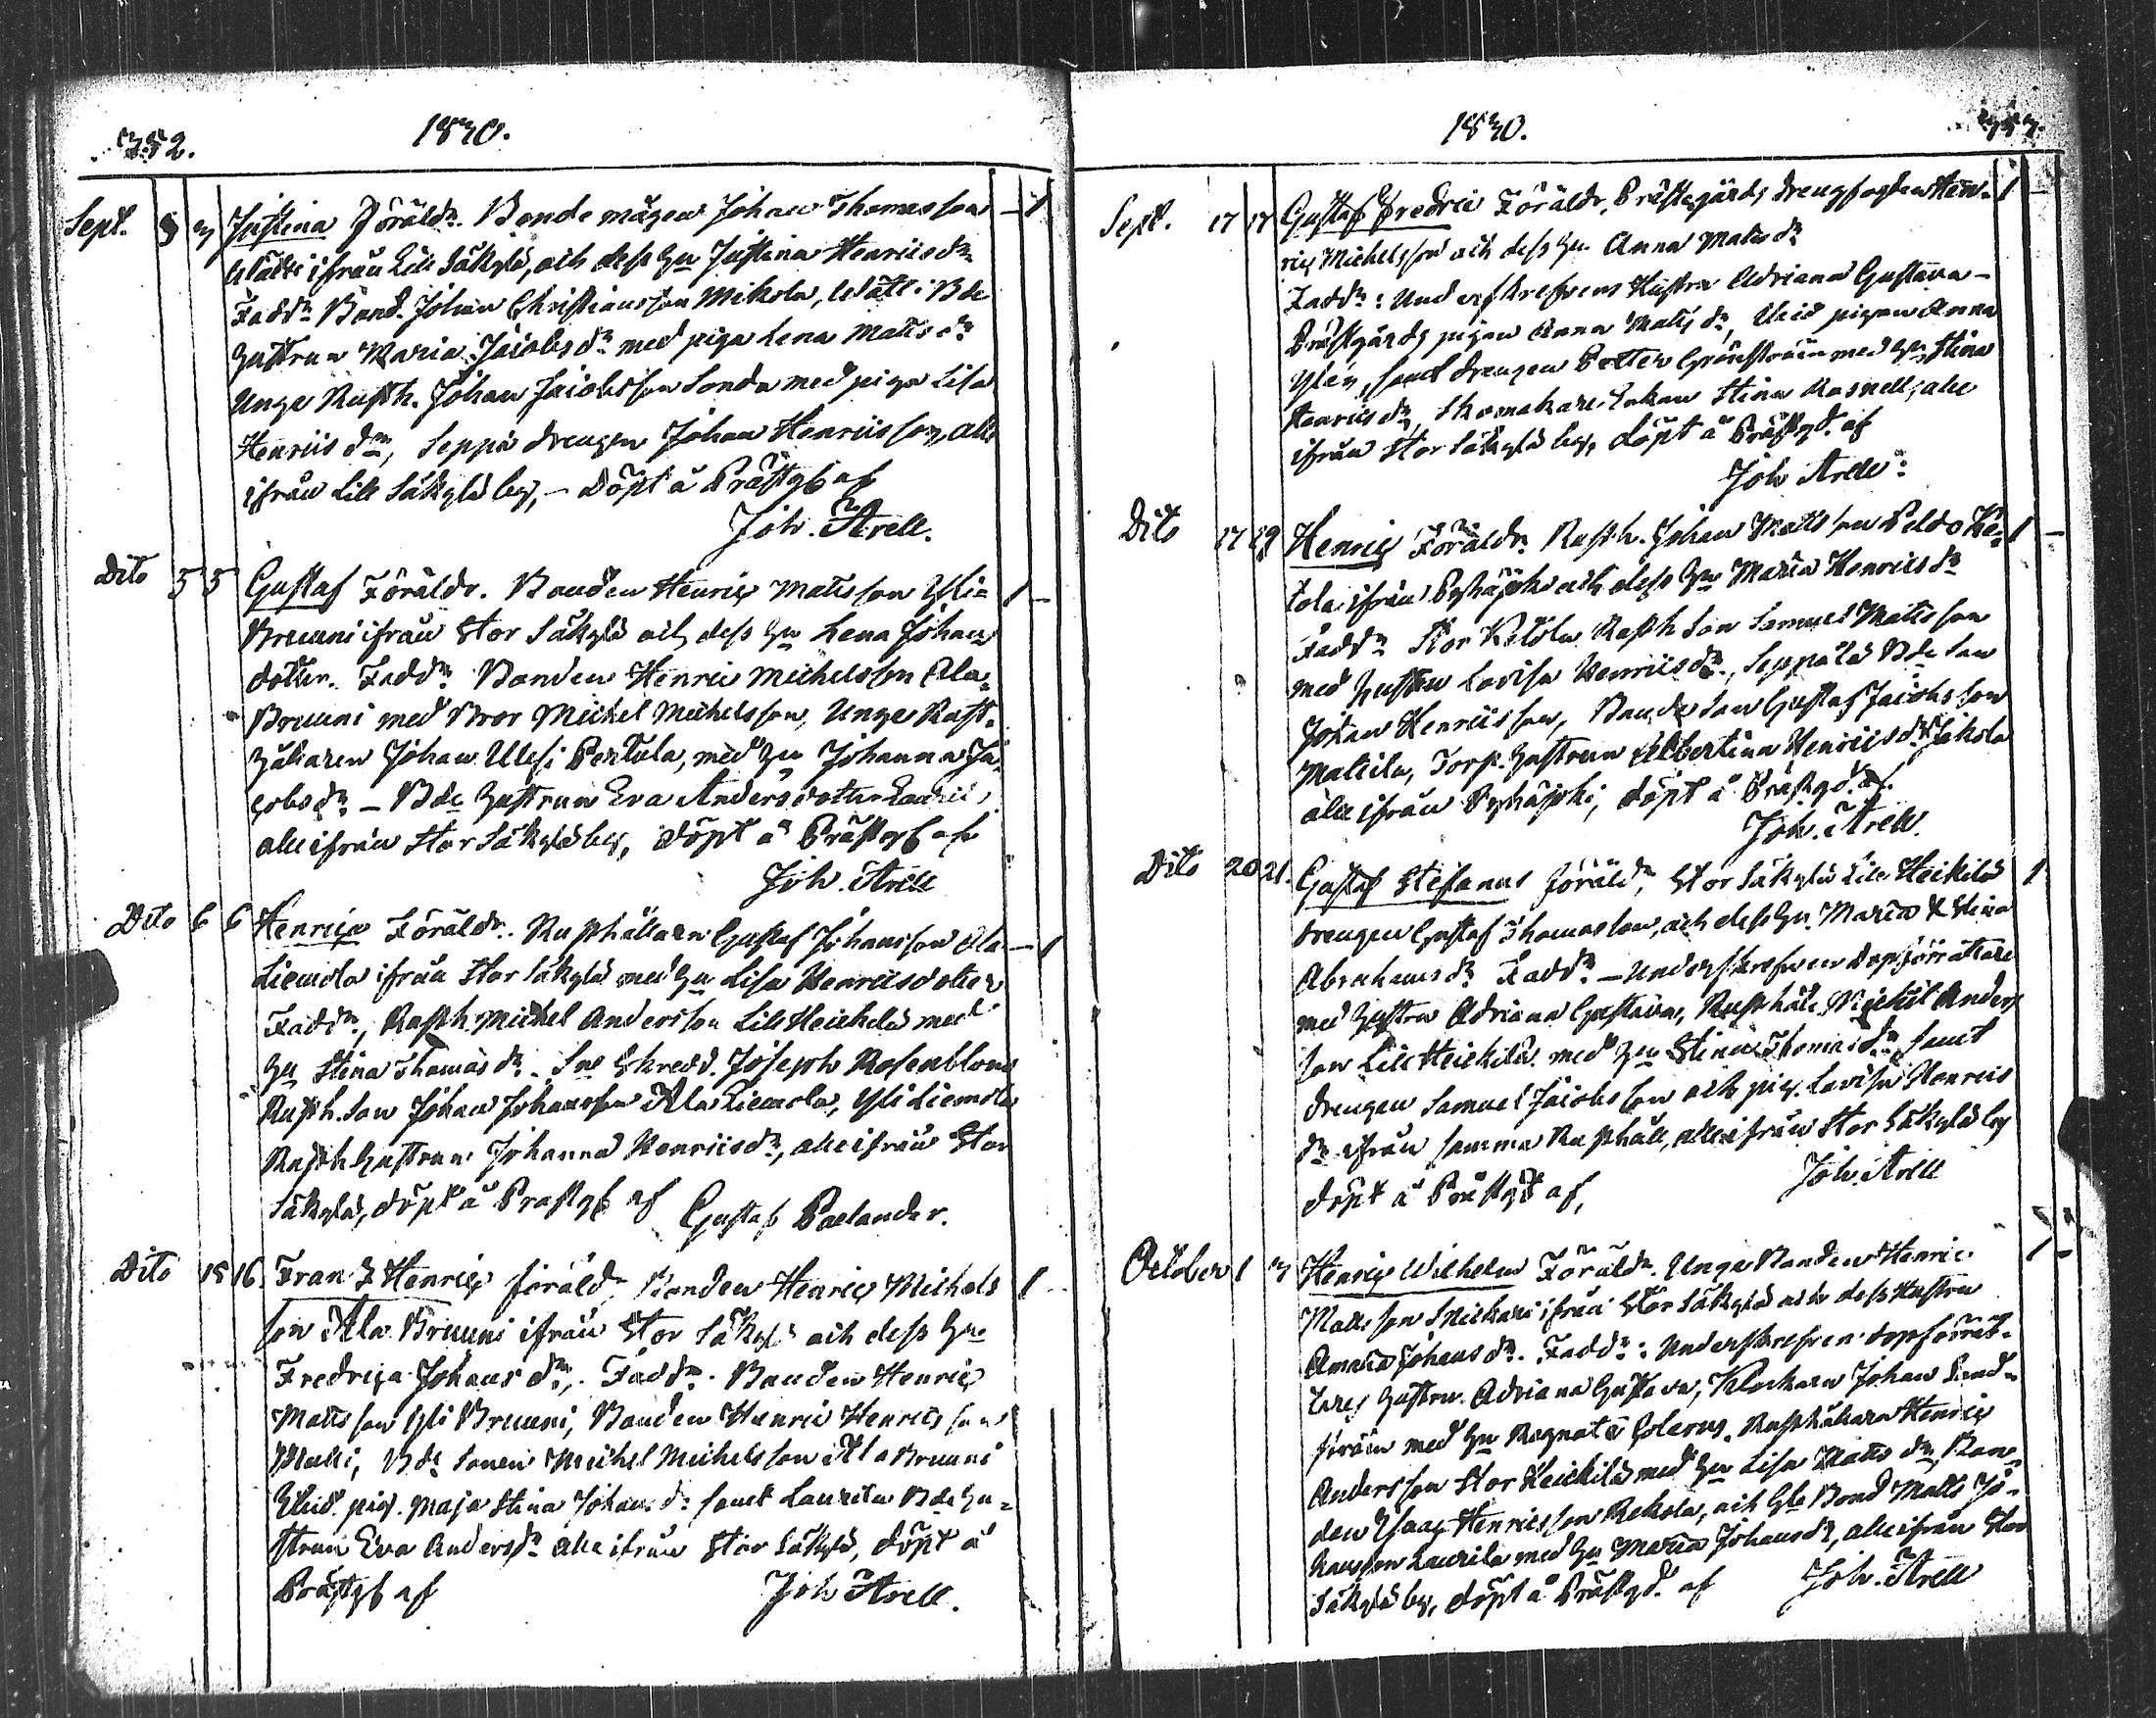 352.
1830.
Sept. 3 3 Justina Föräldr. Bonde mågen Johan Thomasson — 1
Wälli ifrån Lill Säkylä, och dess Hu Justina Henricsdr
Faddr. Bond. Johan Christiansson Mikola, Wälli Bde
Hustrun Maria Jacobsdr med piga Lena Mattsdr
Unge Rusth. Johan Jacobsson Sonda med piga Lisa
Henricsdr, Seppä drengen Johan Henricsson, alla
ifrån Lill Säkylä by, — Döpt å Prästgd af
Joh. Arell.
Dito 5 5 Gustaf Föräldr. Bonden Henric Mattsson Yli= 1 —
Bruuni ifrån Stor Säkylä och dess Hu Lena Johans
dotter. Faddr. Bonden Henric Michelsson Ala=
Bruuni med Bror Michel Michelsson, Unge Rust=
hållaren Johan Ulesi Perttula, med Hu Johanna Ja=
cobsdr — Bde Hustrun Eva Andersdotter
alle ifrån Stor Säkylä by, döpt å Prästgd af
Joh. Arell
Dito 6 6 Henrica Föräldr. Rusthållaren Gustaf Johansson Ala — 1
Liemola ifrån Stor Säkylä med Hu Lisa Henricsdotter
Faddr, Rusth. Michel Andersson Lill Heickilä med
Hu Stina Thomasdr. Skredd. Joseph Rosenblom
Rusth. Son Johan Johansson Ala Liemola, Yli Liemola
Rusth Hustrun Johanna Henricsdr, alle ifrån Stor
Säkylä, döpt å Prästgd af
Gustaf Paelander.
Dito 15 16. Franz Henric föräldr Bonden Henric Michels 1
son Ala Bruuni ifrån Stor Säkylä och dess Hu
Fredrica Johansdr, Faddr. Bonden Henric
Mattsson Yli Bruuni, Bonden Henric Henricsson
Bde Sonen Michel Michelsson Ala Bruuni
pig. Maja Stina Johansdr samt Laurila Bde Hu=
strun Eva Andersdr alle ifrån Stor Säkylä, döpt å
Prästgd af
Joh Arell.
1830.
353.
Sept. 17 17 Gustaf Fredric Föräldr. Prästegårds drengfogden Hen= 1 —
ric Michelsson och dess Hu Anna Mattsdr
Faddr: Underskrefvens Hustru Adriana Gustava —
Prästgårds pigan Anna Mattsdr, pigan Anna
samt drengen Petter Grönström med Hu Stina
Henricsdr, Skomakare Enkan Stina Rasnell, alle
ifrån Stor Säkylä by, döpt å Prästgd. af
Joh Arell:
Dito 17 19 Henric Föräldr. Rusth. Johan Mattsson Peldo Ke= 1 —
tola ifrån Pyhäjoki och dess Hu Maria Henricsdr
Faddr Stor Ketola Rusth Son Samuel Mattsson
med Hustru Lovisa Henricsdr, Seppälä Bde Son
Johan Henricsson, Bonde Son Gustaf Jacobsson
Mattila, Torp. Hustrun Albertina Henricsdr Jakola
alle ifrån Pyhäjoki, döpt å Prästgd. af
Joh. Arell.
Dito 20 21. Gustaf Stefanus föräldr, Stor Säkylä Lill Heickilä 1
drengen Gustaf Thomasson, och dess Hu. Maria Stina
Abrahamsdr Faddr — Underskrefven dopförrättare
med Hustru Adriana Gustava, Rusthåll. Michel Anders
son Lill Heickilä med Hu Stina Thomasdr, samt
drengen Samuel Jacobsson och pig. Lovisa Henrics
dr ifrån samma Rusthåll, alle ifrån Stor Säkylä by
döpt å Prästgd af,
Joh. Arell
October 1 3 Henric Wilhelm Föräldr. Unge Bonden Henric 1 —
Mattsson Snickari ifrån Stor Säkylä och dess Hustru
Amalia Johansdr. Faddr: Underskrefven dopförrät=
tares Hustru Adriana Gustava, Klockaren Johan Sand=
ström med Hu Regnata Polerus. Rusthållaren Henric
Andersson Stor Heickilä med Hu Lisa Mattsdr, Bon=
den Isaac Henricsson Rekola, och Gle Bond Matts Jo=
hansson Laurila med Hu Maria Johansdr, alle ifrån Stor
Säkylä by, döpt å Prästgd. af
Joh. Arell